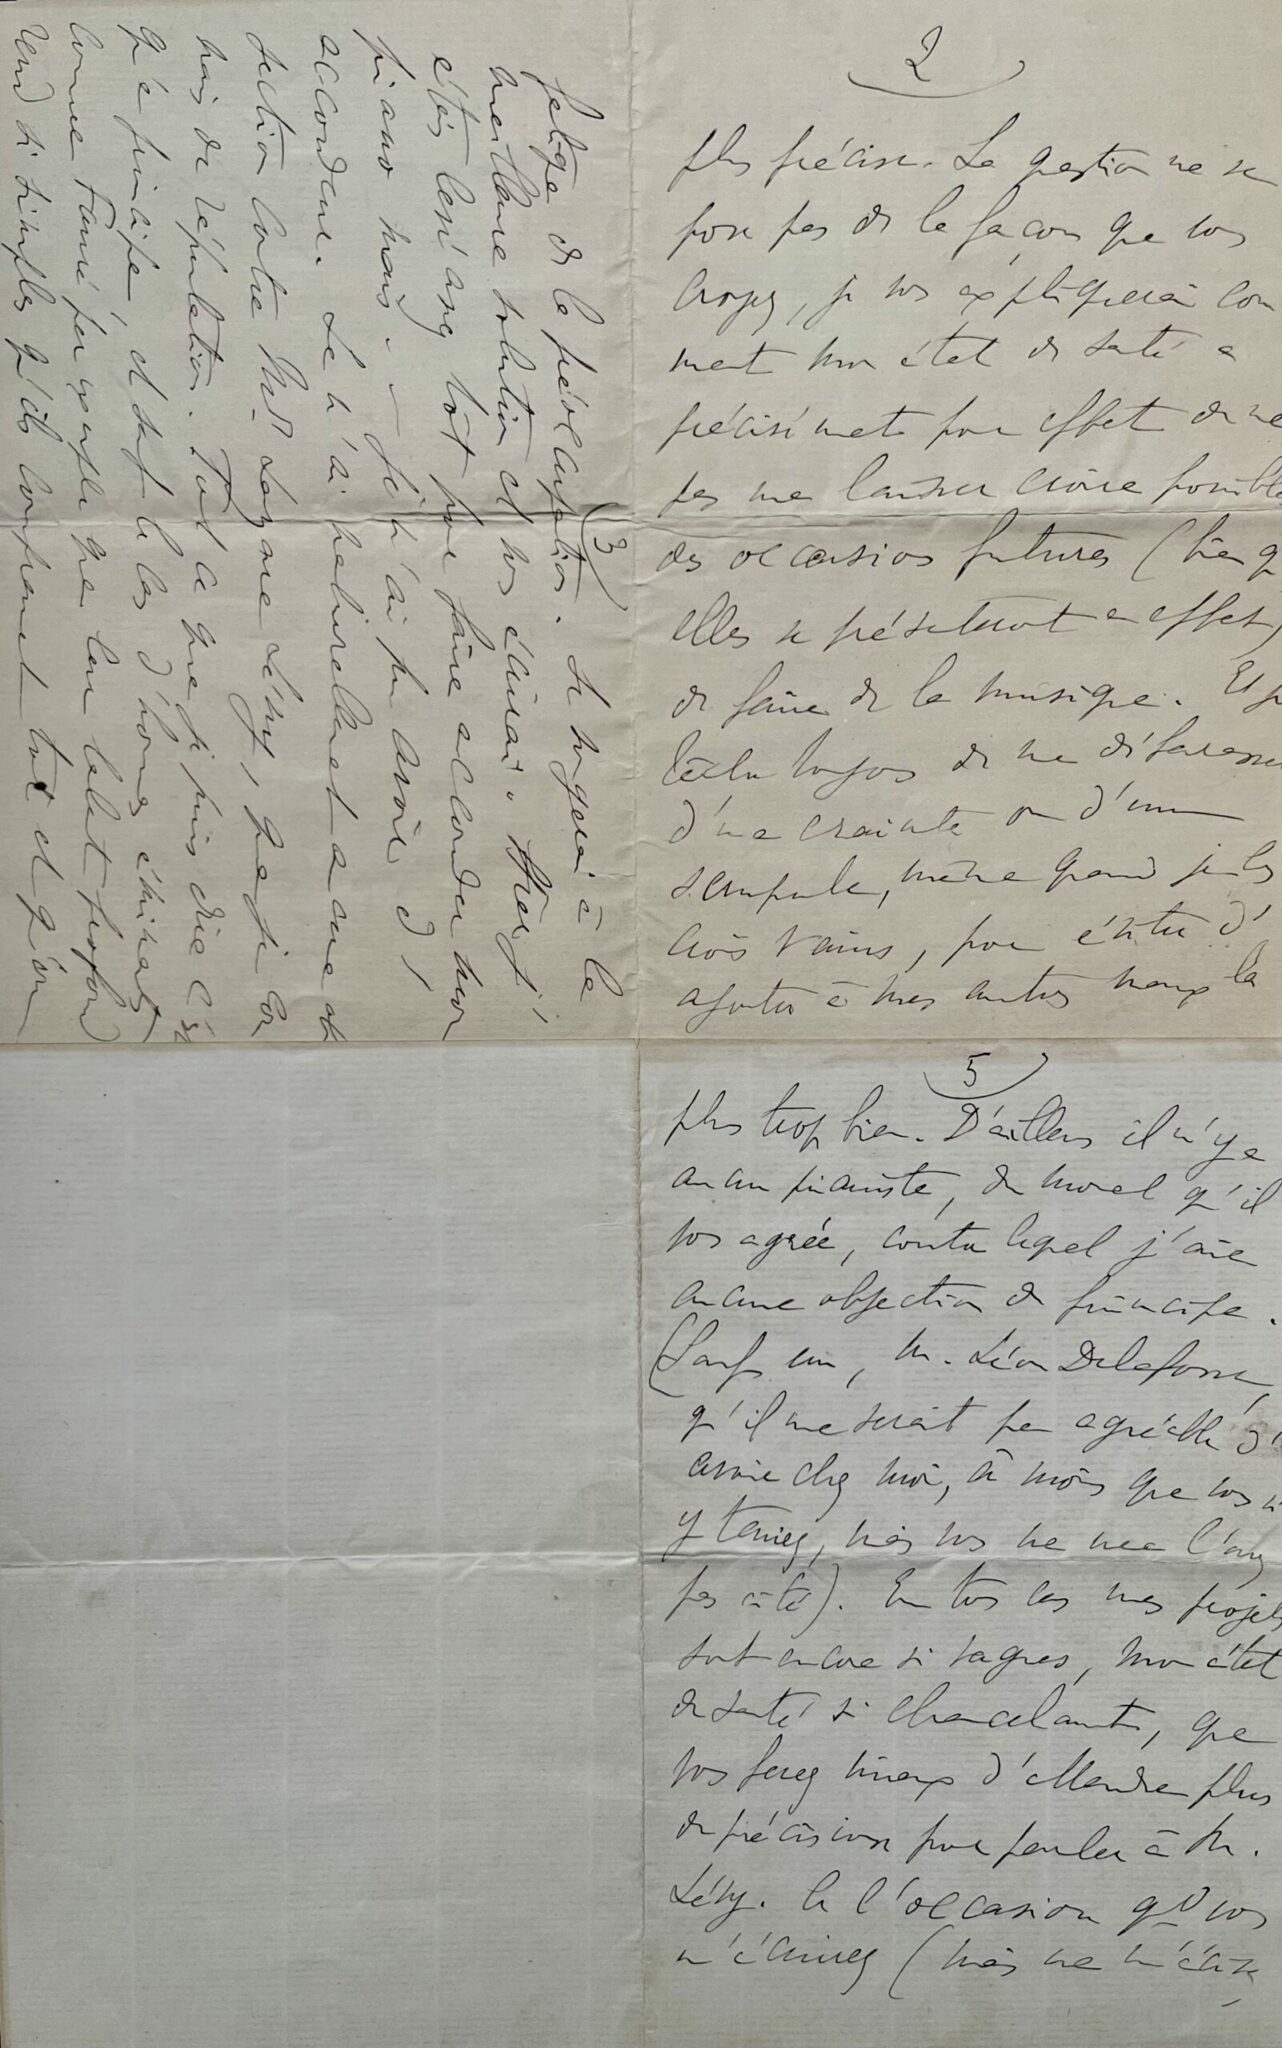 2
plus précise. La question ne se
pose pas de la façon que vous
croyez, je vous expliquerai com
ment mon état de santé a
précisément pour effet de ne
pas me laisser croire possible
des occasions futures (bien qu
elles se présenteront en effet)
de faire de la musique. Et p
toujours de me débarrasser
d'une crainte ou d'un
scrupule, même quand je les
crois vains, pour éviter d'
ajouter à mes autres maux la
3
fatigue de la préoccupation. Je songerai à la
meilleure solution et vous écrirai.
étés les assez tôt pour faire accorder mon
piano mais. — je n'ai pu avoir d'
accordeur. Je n'ai naturellement aucune ob
jection contre Mr Lazare Lévy, que je con
nais de réputation. Tout ce que je puis dire c'est
qu'en principe, et sauf le cas d'hommes éminents
comme Fauré par exemple que leur talent profond
rend si simples qu'ils comprennent tout et qu'on
5
plus trop bien. D'ailleurs il n'y a
aucun pianiste, du moment qu'il
vous agrée, contre lequel j'aie
aucune objection de principe.
(Sauf un, M. Léon Delafosse,
qu'il me serait peu agréable d'
avoir chez moi, à moins que vous n'
y teniez, mais vous ne me l'avez
pas cité). En tous cas mes projets
sont encore si vagues, mon état
de santé si chancelant, que
vous ferez mieux d'attendre plus
de précision pour parler à M.
Lévy. A l'occasion qd vous
m'écrirez (mais ne m'écrivez